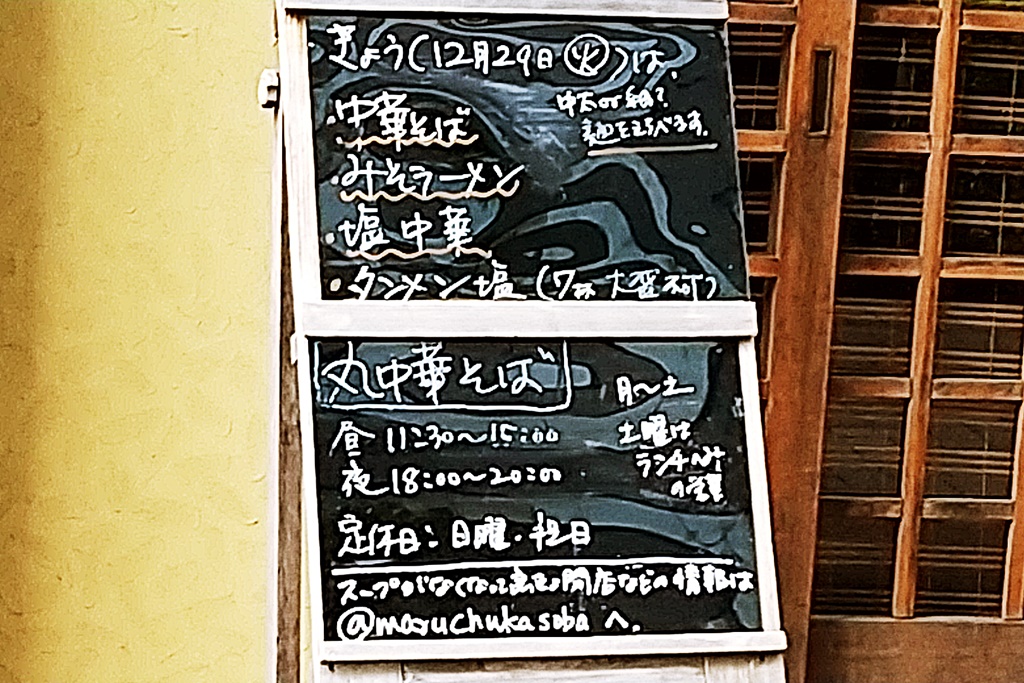 きょう(12月29日㊋)は、
中太or細?
麺をえらべます。
・中華そば
・みそラーメン
・塩中華
・タンメン塩(7杯 大盛不可)
丸中華そば
月〜土
昼 11:30〜15:00
土曜は
ランチのみ
の営業
夜 18:00〜20:00
定休日:日曜・祝日
スープがなくなって 閉店などの情報は
@maruchukasoba へ。